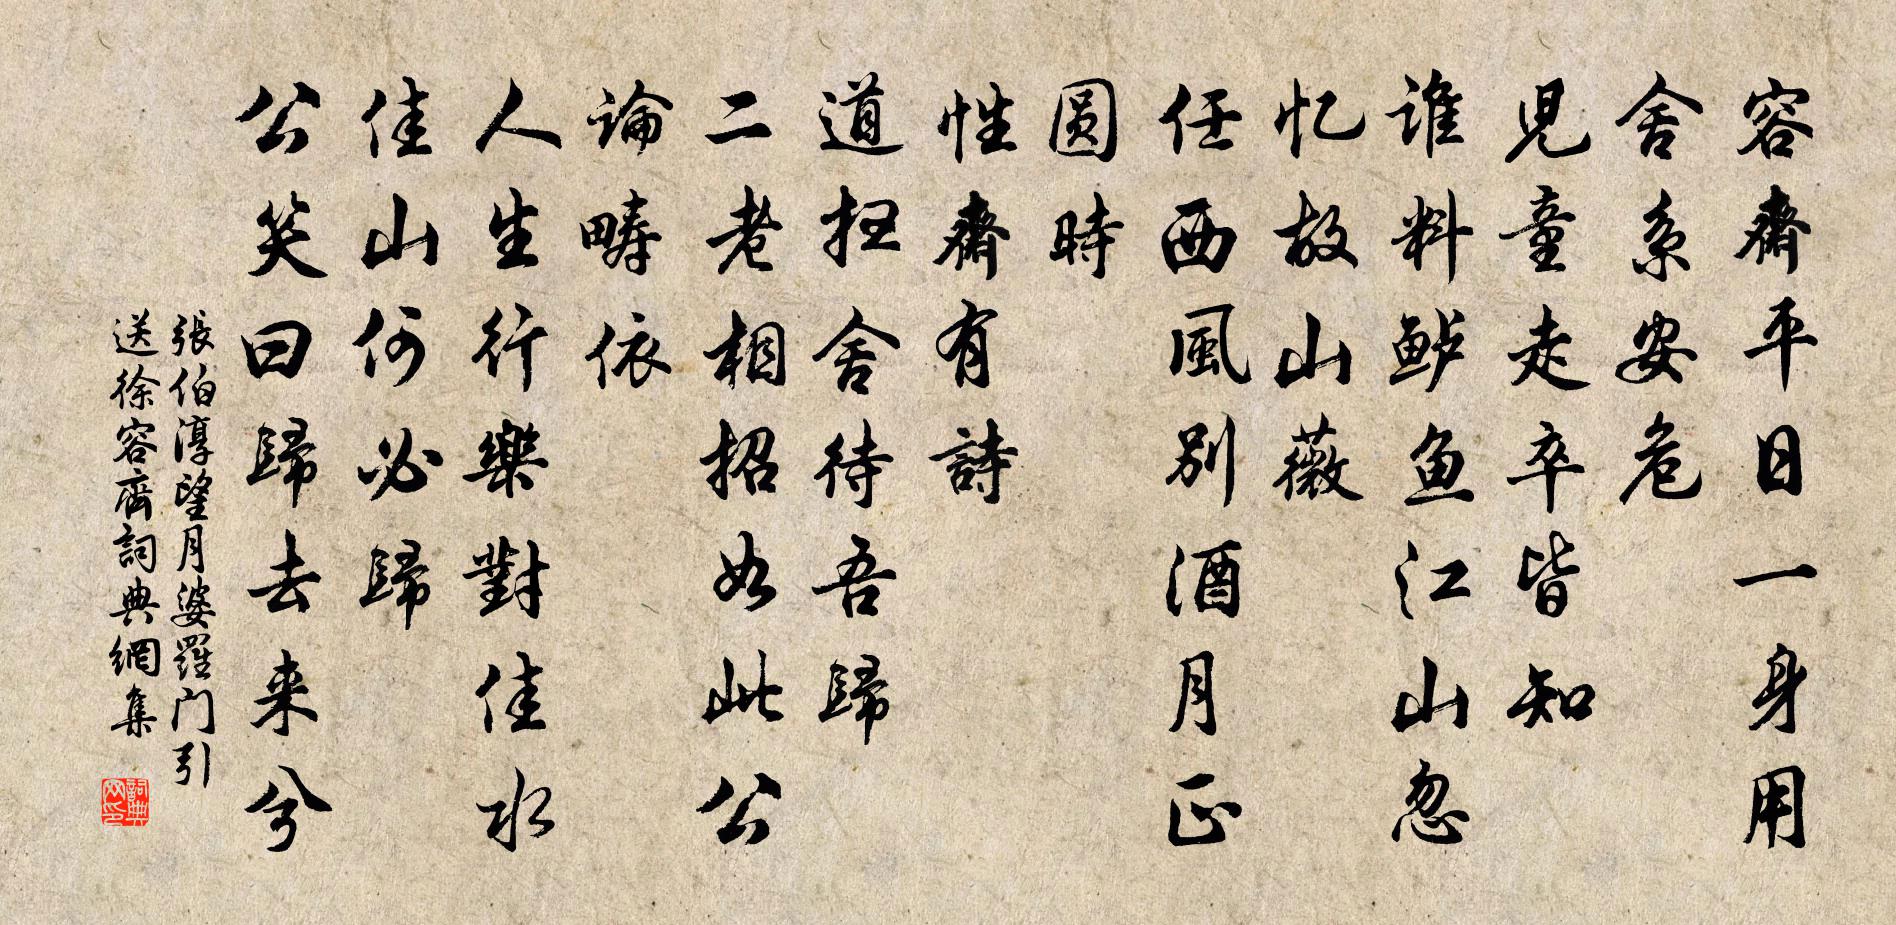 容齋平日一身用
舍系安危
児童走卒皆知
谁料鲈鱼江山忽
忆故山薇
任西風别酒月正
圆時
性齋有詩
道扫舍待吾歸
二老相招如此公
論疇依
人生行樂對佳水
佳山何必歸
公笑曰歸去来兮
張伯淳望月婆羅门引
送徐容齋詞典網集
詞典
网印